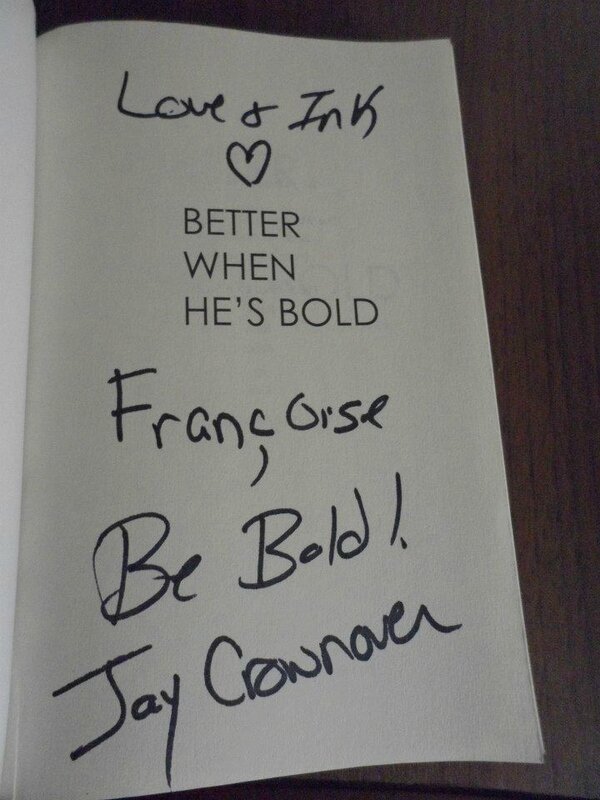 Love & Ink
♡
BETTER
WHEN
HE'S BOLD
Françoise
Be Bold!
Jay Crownover